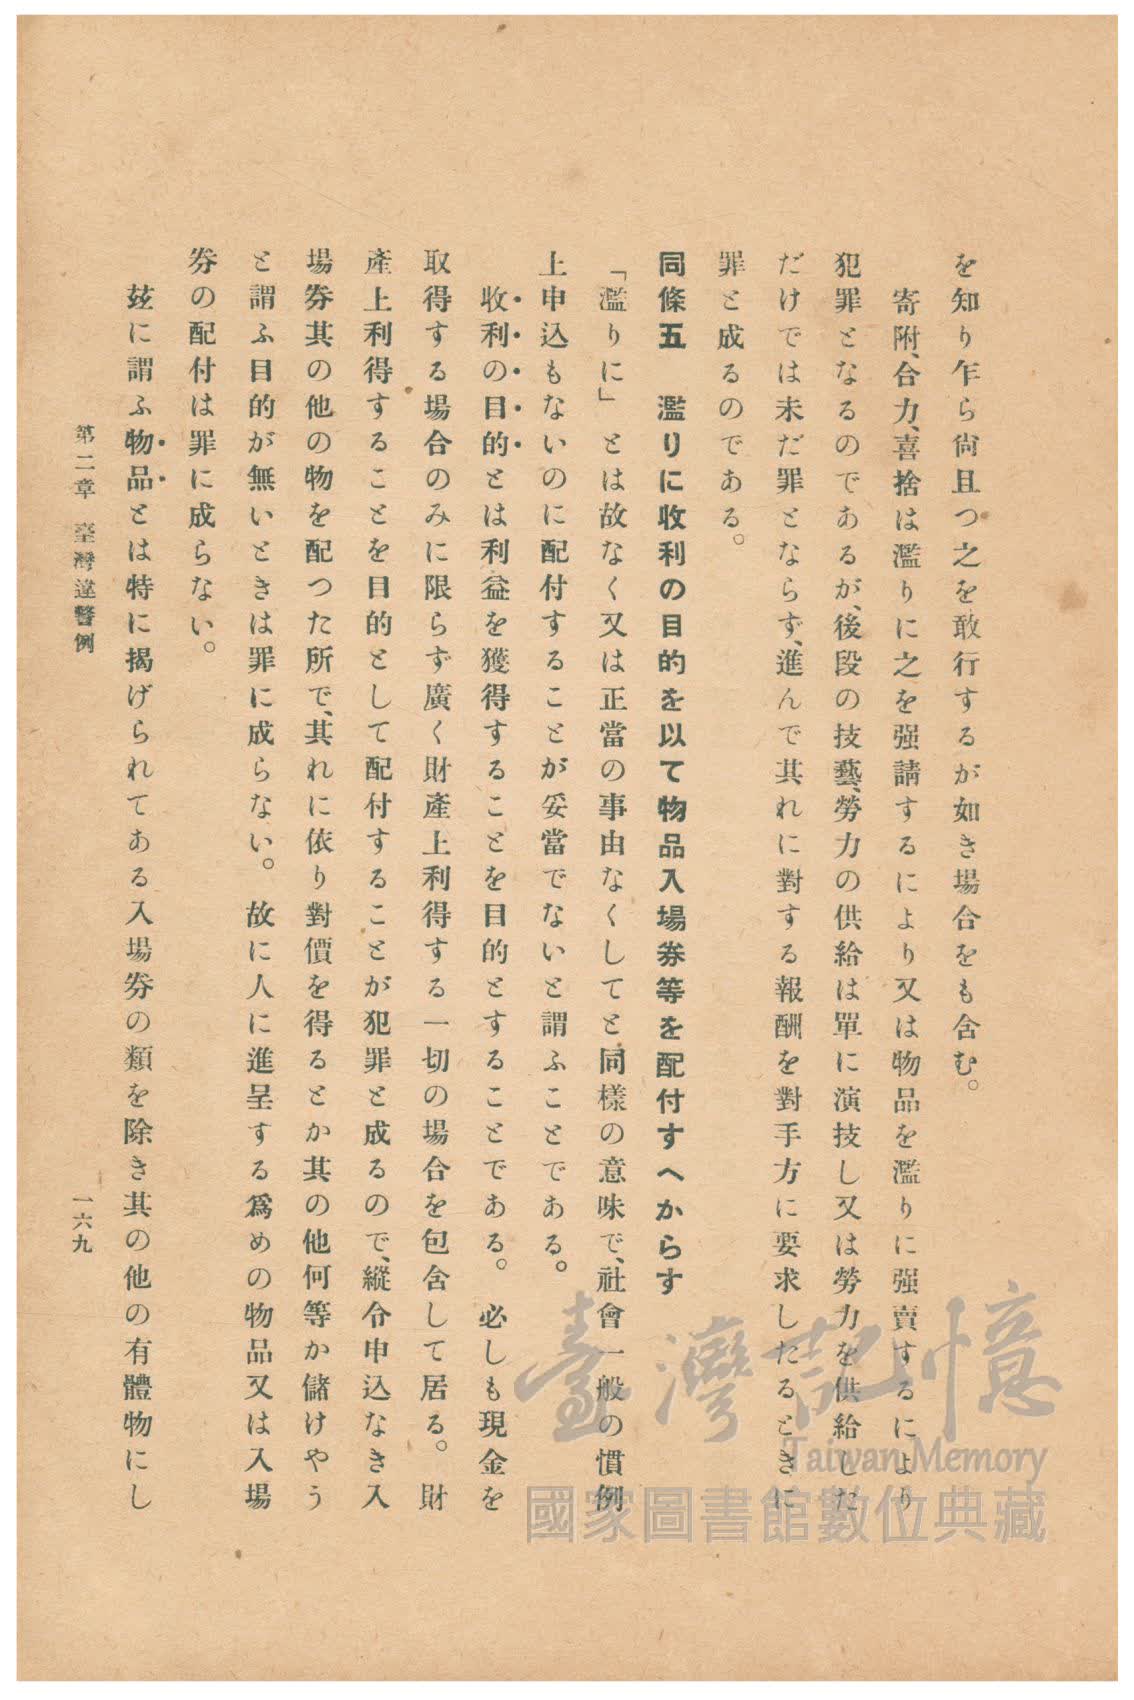 を知り乍ら尙且つ之を敢行するが如き場合をも含む。
寄附、合力、喜捨は濫りに之を强請するにより又は物品を濫りに强賣するにより
犯罪となるのであるが、後段の技藝、勞力の供給は單に演技し又は勞力を供給した
だけでは未だ罪とならず、進んで其れに對する報酬を對手方に要求したるときに
罪と成るのである。
同條五　濫りに收利の目的を以て物品入場券等を配付すへからす
「濫りに」とは故なく又は正當の事由なくしてと同樣の意味で、社會一般の慣例
上申込もないのに配付することが妥當でないと謂ふことである。
收利の目的とは利益を獲得することを目的とすることである。必しも現金を
取得する場合のみに限らず廣く財產上利得する一切の場合を包含して居る。財
產上利得することを目的として配付することが犯罪と成るので、縱令申込なき入
場券其の他の物を配つた所で、其れに依り對價を得るとか其の他何等か儲けやう
と謂ふ目的が無いときは罪に成らない。故に人に進呈する爲めの物品又は入場
券の配付は罪に成らない。
玆に謂ふ物品とは特に揭げられてある入場券の類を除き其の他の有體物にし
第二章　臺灣違警例
一六九
臺灣記憶
Taiwan Memory
國家圖書館數位典藏